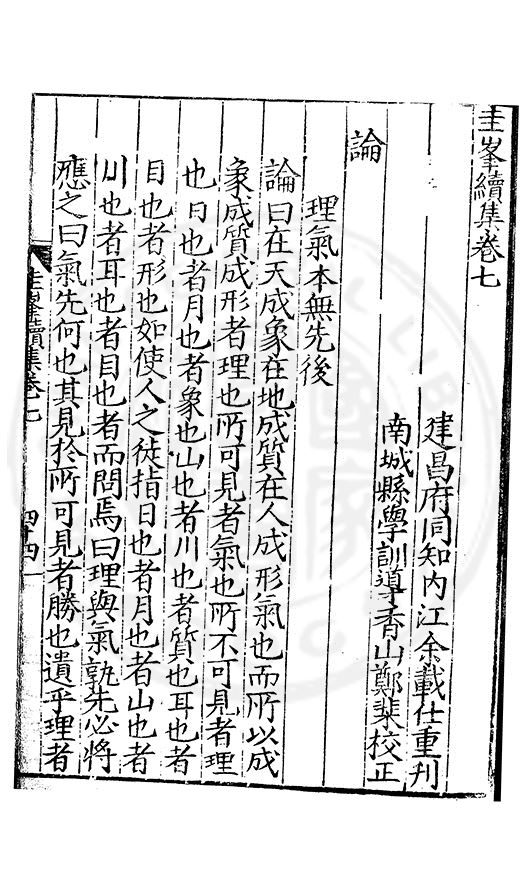 圭峯續集卷七
建昌府同知内江余載仕重刊
南城縣學訓導香山鄭棐校正
論
理氣本無先後
論曰在天成象在地成質在人成形氣也而所以成
象成質成形者理也所可見者氣也所不可見者理
也日也者月也者象也山也者川也者質也耳也者
目也者形也如使人之徒指日也者月也者山也者
川也者耳也者目也者而問焉曰理與氣孰先必將
應之曰氣先何也其見於所可見者勝也遺乎理者
圭峯續集卷七